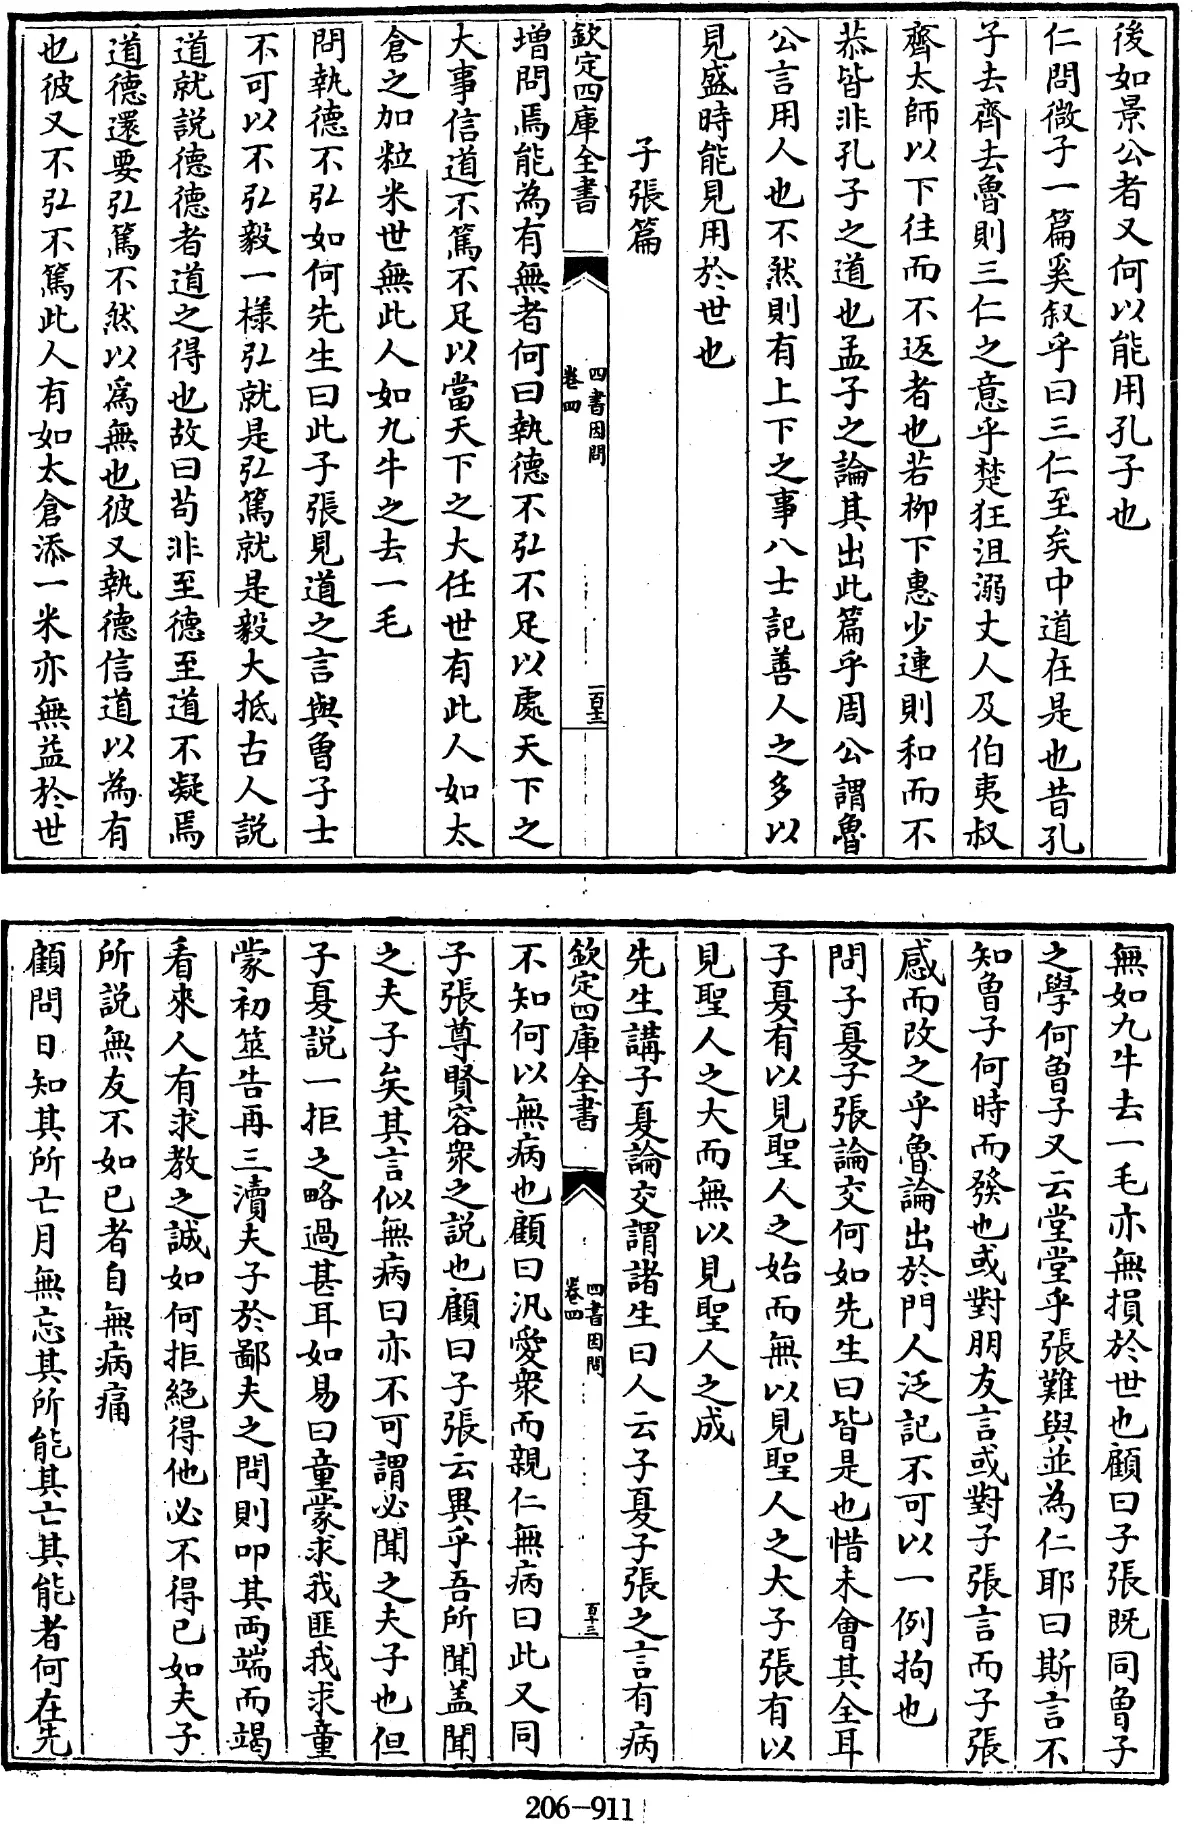 後如景公者又何以能用孔子也
仁問微子一篇奚叙乎曰三仁至矣中道在是也昔孔
子去齊去魯則三仁之意乎楚狂沮溺丈人及伯夷叔
齊太師以下往而不返者也若柳下惠少連則和而不
恭皆非孔子之道也孟子之論其出此篇乎周公謂魯
公言用人也不然則有上下之事八士記善人之多以
見盛時能見用於世也
子張篇
欽定四庫全書
四書因問
卷四
一百十二
增問焉能為有無者何曰執德不弘不足以處天下之
大事信道不篤不足以當天下之大任世有此人如太
倉之加粒米世無此人如九牛之去一毛
問執德不弘如何先生曰此子張見道之言與魯子士
不可以不弘毅一樣弘就是弘篤就是毅大抵古人説
道就説德德者道之得也故曰苟非至德至道不凝焉
道德還要弘篤不然以爲無也彼又執德信道以為有
也彼又不弘不篤此人有如太倉添一米亦無益於世
無如九牛去一毛亦無損於世也顧曰子張既同魯子
之學何魯子又云堂堂乎張難與並為仁耶曰斯言不
知魯子何時而發也或對朋友言或對子張言而子張
感而改之乎魯論出於門人泛記不可以一例拘也
問子夏子張論交何如先生曰皆是也惜未會其全耳
子夏有以見聖人之始而無以見聖人之大子張有以
見聖人之大而無以見聖人之成
先生講子夏論交謂諸生曰人云子夏子張之言有病
欽定四庫全書
四書因問
卷四
百十三
不知何以無病也顧曰汎愛衆而親仁無病曰此又同
子張尊賢容衆之説也顧曰子張云異乎吾所聞盖聞
之夫子矣其言似無病曰亦不可謂必聞之夫子也但
子夏説一拒之略過甚耳如易曰童蒙求我匪我求童
蒙初筮告再三瀆夫子於鄙夫之問則叩其兩端而竭
看來人有求教之誠如何拒絶得他必不得已如夫子
所説無友不如已者自無病痛
顧問日知其所亡月無忘其所能其亡其能者何在先
206-911